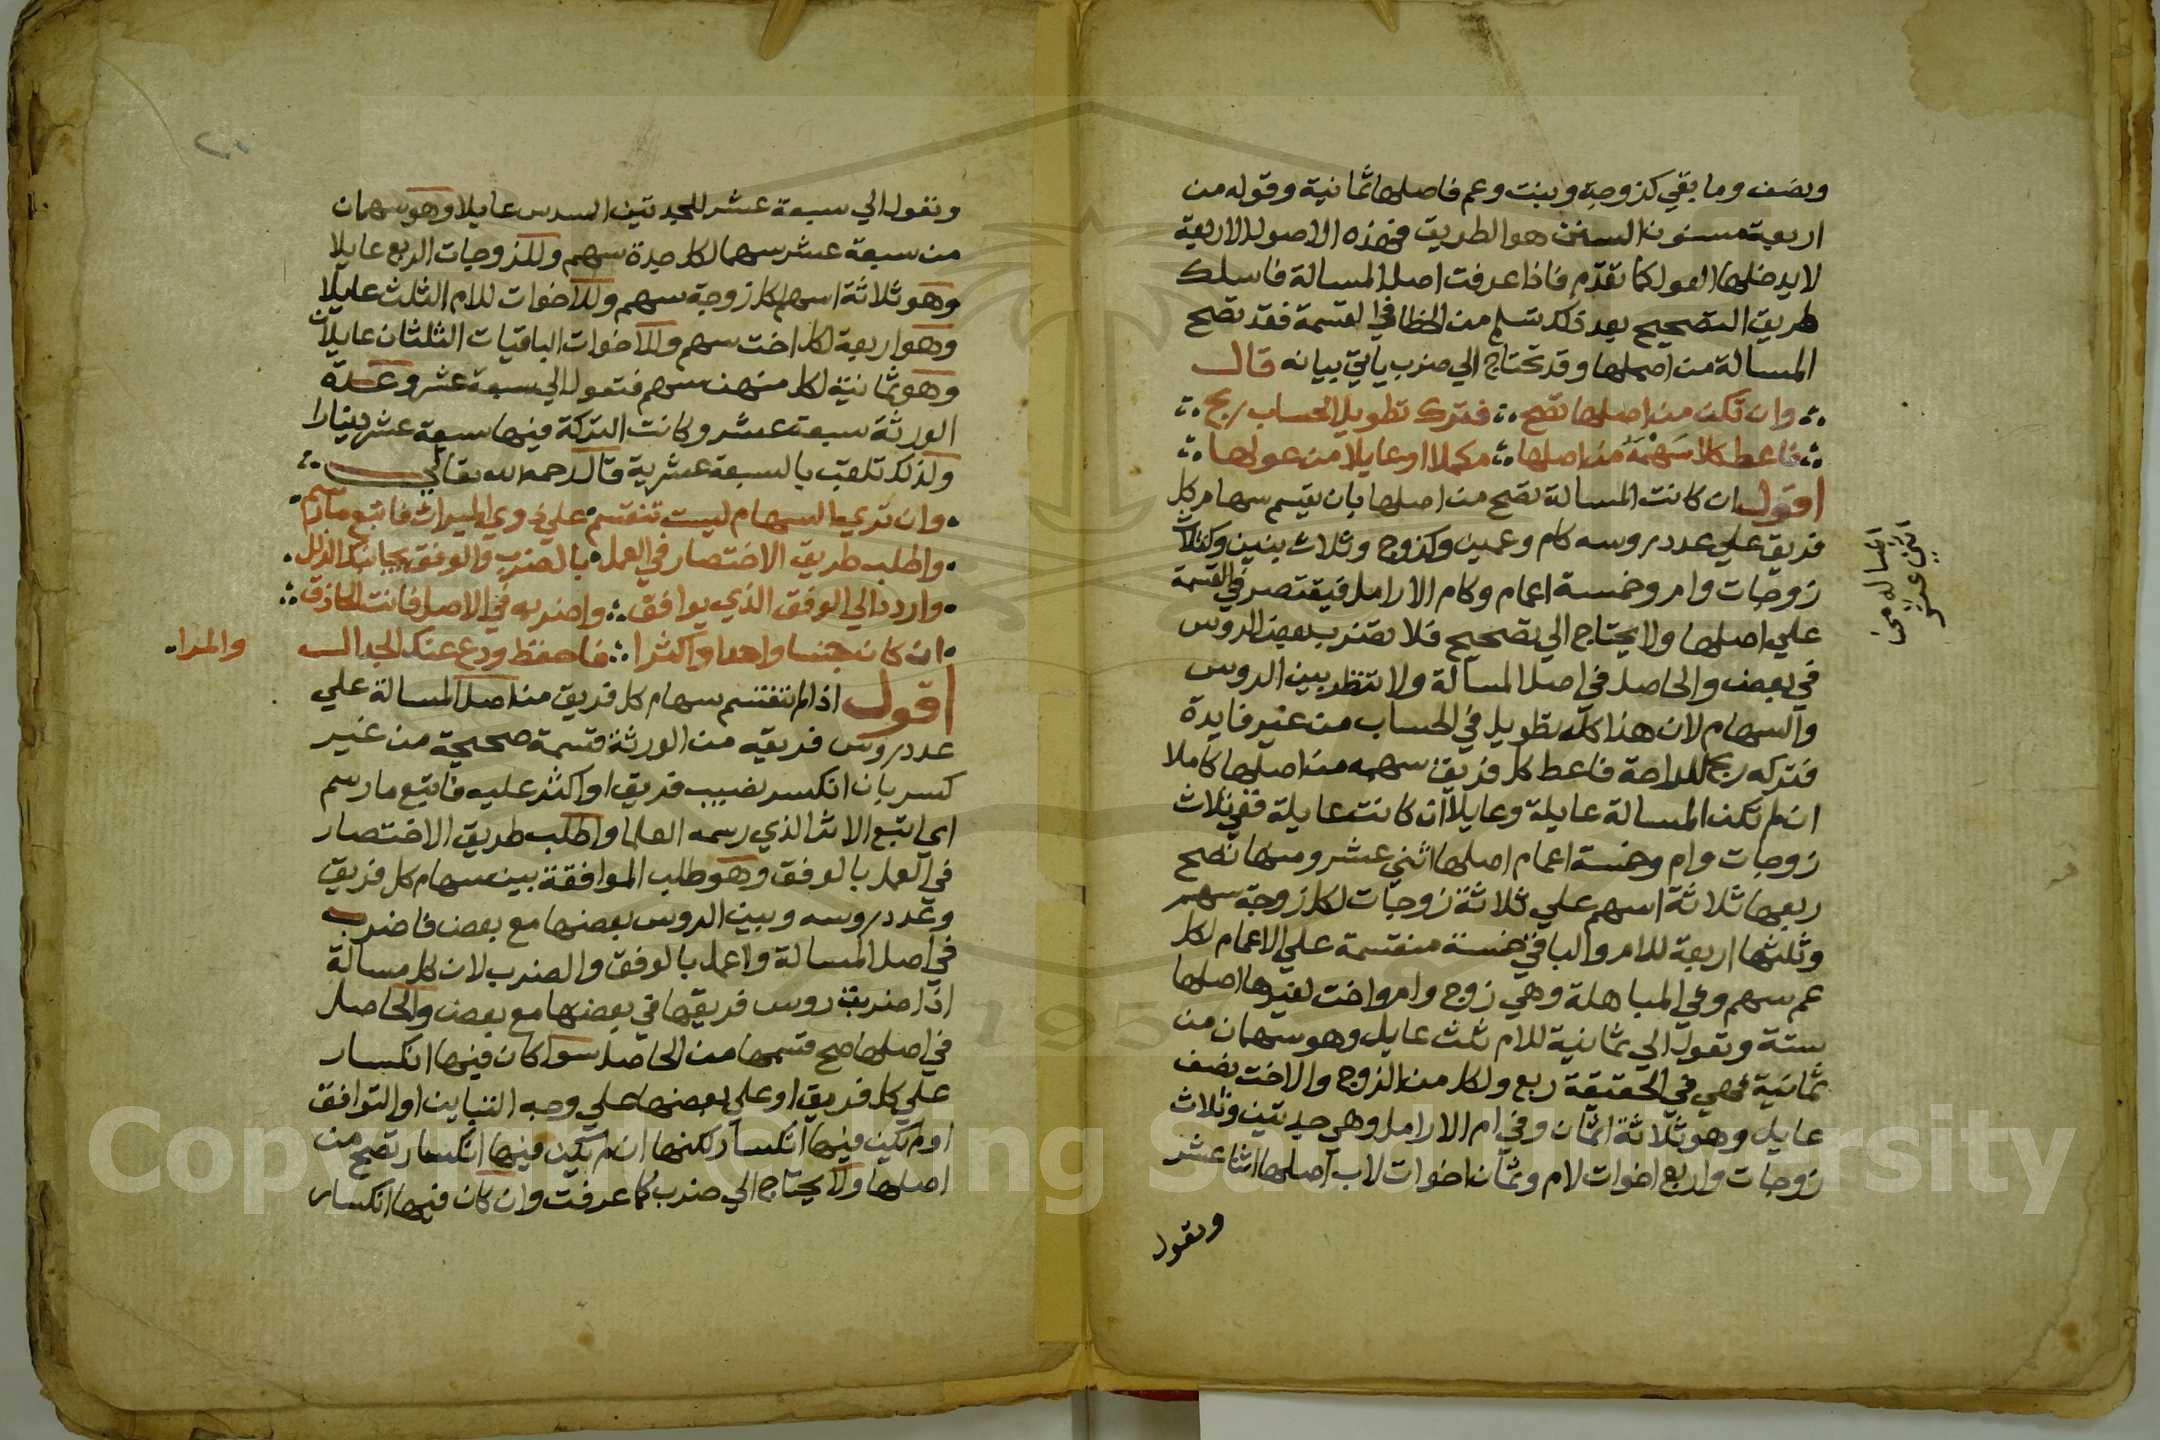 ونصف وما بقي كزوجة وبنت وعم فاصلها ثمانية وقوله من
اربعية مسنون السنن هو الطريق فهذه الاصول الاربعة
لا يدخلها العول كما تقدم فاذا عرفت اصل المسالة فاسلك
طريق التصحيح بعد ذلك تسلم من الخطا في القسمة فقد تصح
المسالة من اصلها وقد تحتاج الي ضرب ياتي بيانه قال
وان تكن من اصلها تصح فترك تطويل الحساب ربح
فاعط كلا سهمه من اصلها مكملا او عايلا من عولها
اقول ان كانت المسالة تصح من اصلها بان يقسم سهام كل
فريق علي عدد روسه كام وعمين وكزوج وثلاث بنين وكثلاث
زوجات وام وخمسة اعمام وكام الارامل فيقتصر في القسمة
علي اصلها ولا يحتاج الي تصحيح فلا تضرب بعض الروس
في بعض والحاصل في اصل المسالة ولا تنظر بين الروس
والسهام لان هذا كله تطويل في الحساب من غير فايدة
فتركه ربح للراحة فاعط كل فريق سهمه من اصلها كاملا
ان لم تكن المسالة عايلة وعايلا ان كانت عايلة ففي ثلاث
زوجات وام وخمسة اعمام اصلها اثني عشر ومنها تصح
ربعها ثلاثة اسهم علي ثلاثة زوجات لكل زوجة سهم
وثلثها اربعة للام والباقي خمسة منقسمة علي الاعمام لكل
عم سهم وفي المباهلة وهي زوج وام واخت لغيرها اصلها
ستة وتعول الي ثمانية للام ثلث عايل وهو سهمان من
ثمانية فهي في الحقيقة ربع ولكل من الزوج والاخت نصف
عايل وهو ثلاثة اثمان وفي ام الارامل وهي جدتين وثلاث
زوجات واربع اخوات لام وثمان اخوات لاب اصلها اثنا عشر
وتعول
وتعول الي سبعة عشر للجدتين السدس عايلا وهو سهمان
من سبعة عشر سهما لكل جدة سهم وللزوجات الربع عايلا
وهو ثلاثة اسهم لكل زوجة سهم وللاخوات للام الثلث عايلا
وهو اربعة لكل اخت سهم وللاخوات الباقيات الثلثان عايلان
وهو ثمانية لكل منهن سهم فتعول الي سبعة عشر وعدة
الورثة سبعة عشر وكانت التركة فيها سبعة عشر دينارا
ولذلك تلقب بالسبعة عشرية قال رحمه الله تعالي
وان تري السهام ليست تنقسم علي ذوي الميراث فاتبع ما رسم
واطلب طريق الاختصار في العمل بالضرب والوفق يجانبك الزلل
واردد الي الوفق الذي يوافق واضربه في الاصل فانت الحاذق
ان كان جنسا واحدا واكثرا فاحفظ ودع عنك الجدال والمرا
اقول اذا لم تنقسم سهام كل فريق من اصل المسالة علي
عدد روس فريقه من الورثة قسمة صحيحة من غير
كسر بان انكسر نصيب فريق او اكثر عليه فاتبع ما رسم
اي اتبع الاثر الذي رسمه العلما واطلب طريق الاختصار
في العمل بالوفق وهو طلب الموافقة بين سهام كل فريق
وعدد روسه وبين الروس بعضها مع بعض فاضرب
في اصل المسالة واعمل بالوفق والضرب لان كل مسالة
اذا ضربت روس فريقها في بعضها مع بعض والحاصل
في اصلها صح قسمها من الحاصل سوا كان فيها انكسار
علي كل فريق او علي بعضها علي وجه التباين او التوافق
او لم يكن فيها انكسار لكنها ان لم يكن فيها انكسار تصح من
اصلها ولا يحتاج الي ضرب كما عرفت وان كان فيها انكسار
Copyright © King Saud University
1957